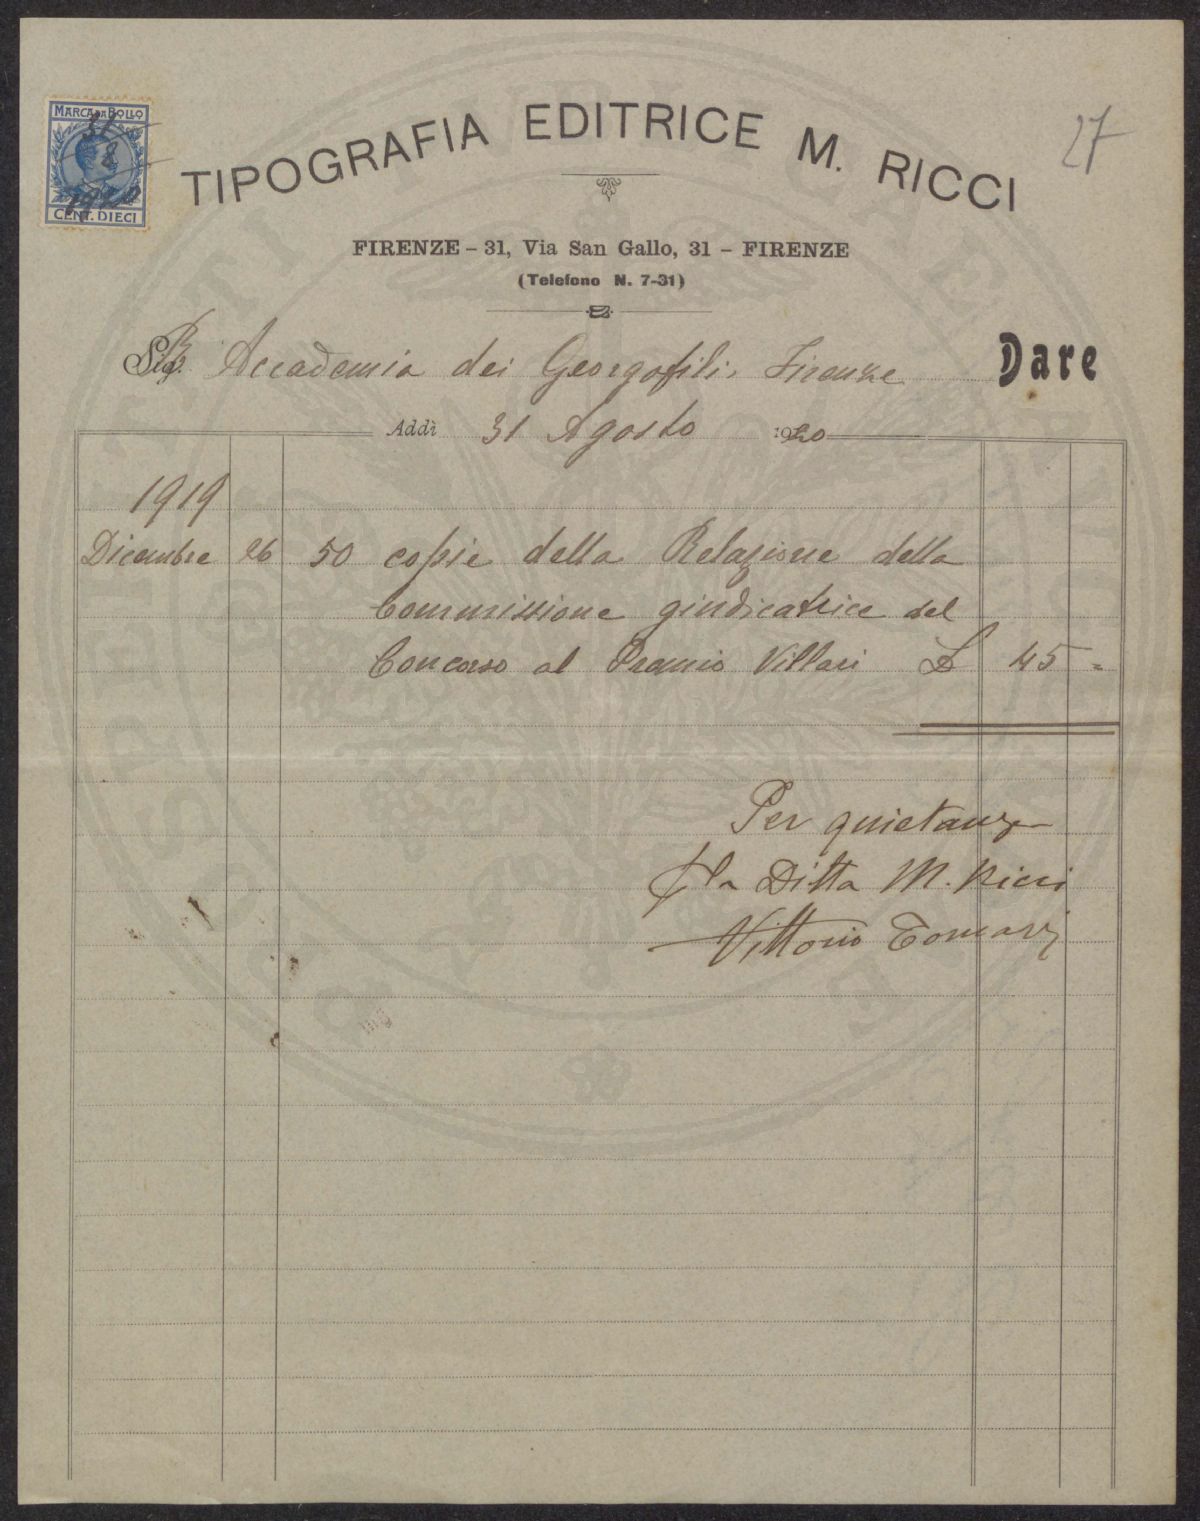 MARCA DA BOLLO
31
8
1920
CENT. DIECI
27
TIPOGRAFIA EDITRICE M. RICCI
FIRENZE – 31, Via San Gallo, 31 – FIRENZE
(Telefono N. 7-31)
R. Accademia dei Georgofili, Firenze Dare
Addì 31 Agosto 1920
1919
Dicembre 26 50 copie della Relazione della
Commissione giudicatrice del
Concorso al Premio Villari £ 45 =
Per quietanza
p la Ditta M. Ricci
Vittorio Tomasi